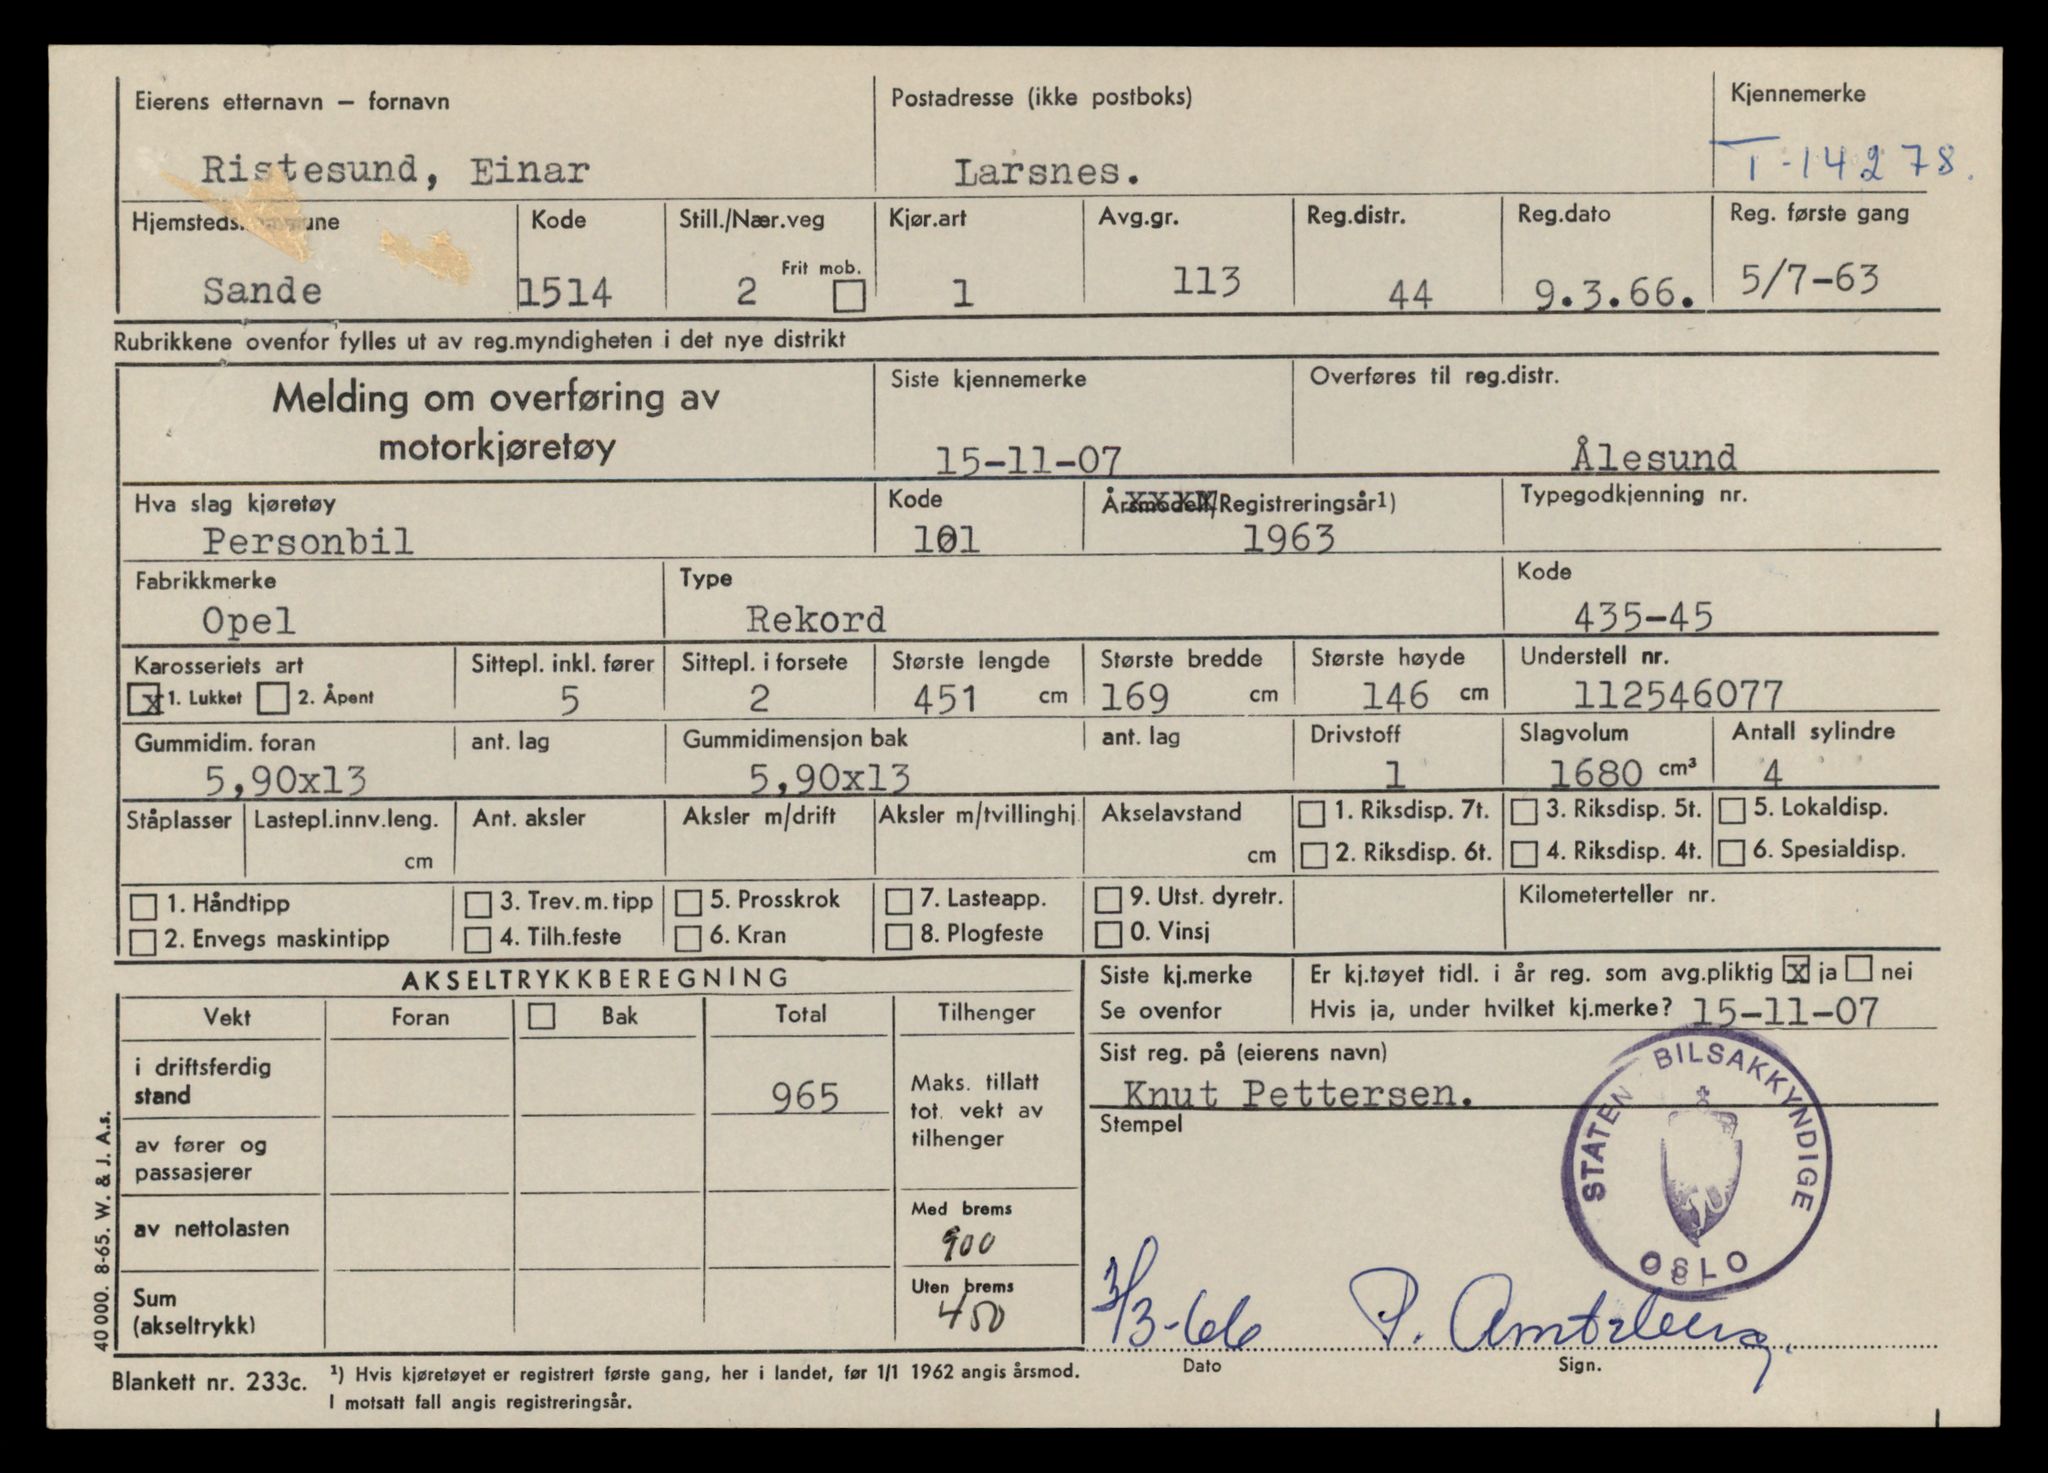 Eierens etternavn – fornavn Postadresse (ikke postboks) Kjennemerke
Ristesund, Einar Larsnes. T-14278.
Hjemsteds Kode Still./Nær.veg Kjør.art Avg.gr. Reg.distr. Reg.dato Reg. første gang
Frit mob.
Sande 1514 2 1 113 44 9.3.66. 5/7-63
Rubrikkene ovenfor fylles ut av reg.myndigheten i det nye distrikt
Melding om overføring av Siste kjennemerke Overføres til reg.distr.
motorkjøretøy 15-11-07 Ålesund
Hva slag kjøretøy Kode Årsmodell/Registreringsår1) Typegodkjenning nr.
Personbil 101 1963
Fabrikkmerke Type Kode
Opel Rekord 435-45
Karosseriets art Sittepl. inkl. fører Sittepl. i forsete Største lengde Største bredde Største høyde Understell nr.
x 1. Lukket 2. Åpent 5 2 451 cm 169 cm 146 cm 112546077
Gummidim. foran ant. lag Gummidimensjon bak ant. lag Drivstoff Slagvolum Antall sylindre
5,90x13 5,90x13 1 1680 cm³ 4
Ståplasser Lastepl.innv.leng. Ant. aksler Aksler m/drift Aksler m/tvillinghj Akselavstand 1. Riksdisp. 7t. 3. Riksdisp. 5t. 5. Lokaldisp.
cm cm 2. Riksdisp. 6t. 4. Riksdisp. 4t. 6. Spesialdisp.
1. Håndtipp 3. Trev. m. tipp 5. Prosskrok 7. Lasteapp. 9. Utst. dyretr. Kilometerteller nr.
2. Envegs maskintipp 4. Tilh.feste 6. Kran 8. Plogfeste 0. Vinsj
AKSELTRYKKBEREGNING
Vekt Foran Bak Total Tilhenger
i driftsferdig
stand 965
Maks. tillatt
tot. vekt av
tilhenger
av fører og
passasjerer
av nettolasten
Med brems
900
Sum
(akseltrykk)
Uten brems
450
Siste kj.merke Er kj.tøyet tidl. i år reg. som avg.pliktig x ja nei
Se ovenfor Hvis ja, under hvilket kj.merke? 15-11-07
Sist reg. på (eierens navn)
Knut Pettersen.
Stempel
STATEN BILSAKKYNDIGE
OSLO
3/3-66
Dato Sign.
40 000. 8-65. W. & J. A.s.
Blankett nr. 233c. ¹) Hvis kjøretøyet er registrert første gang, her i landet, før 1/1 1962 angis årsmod.
I motsatt fall angis registreringsår.